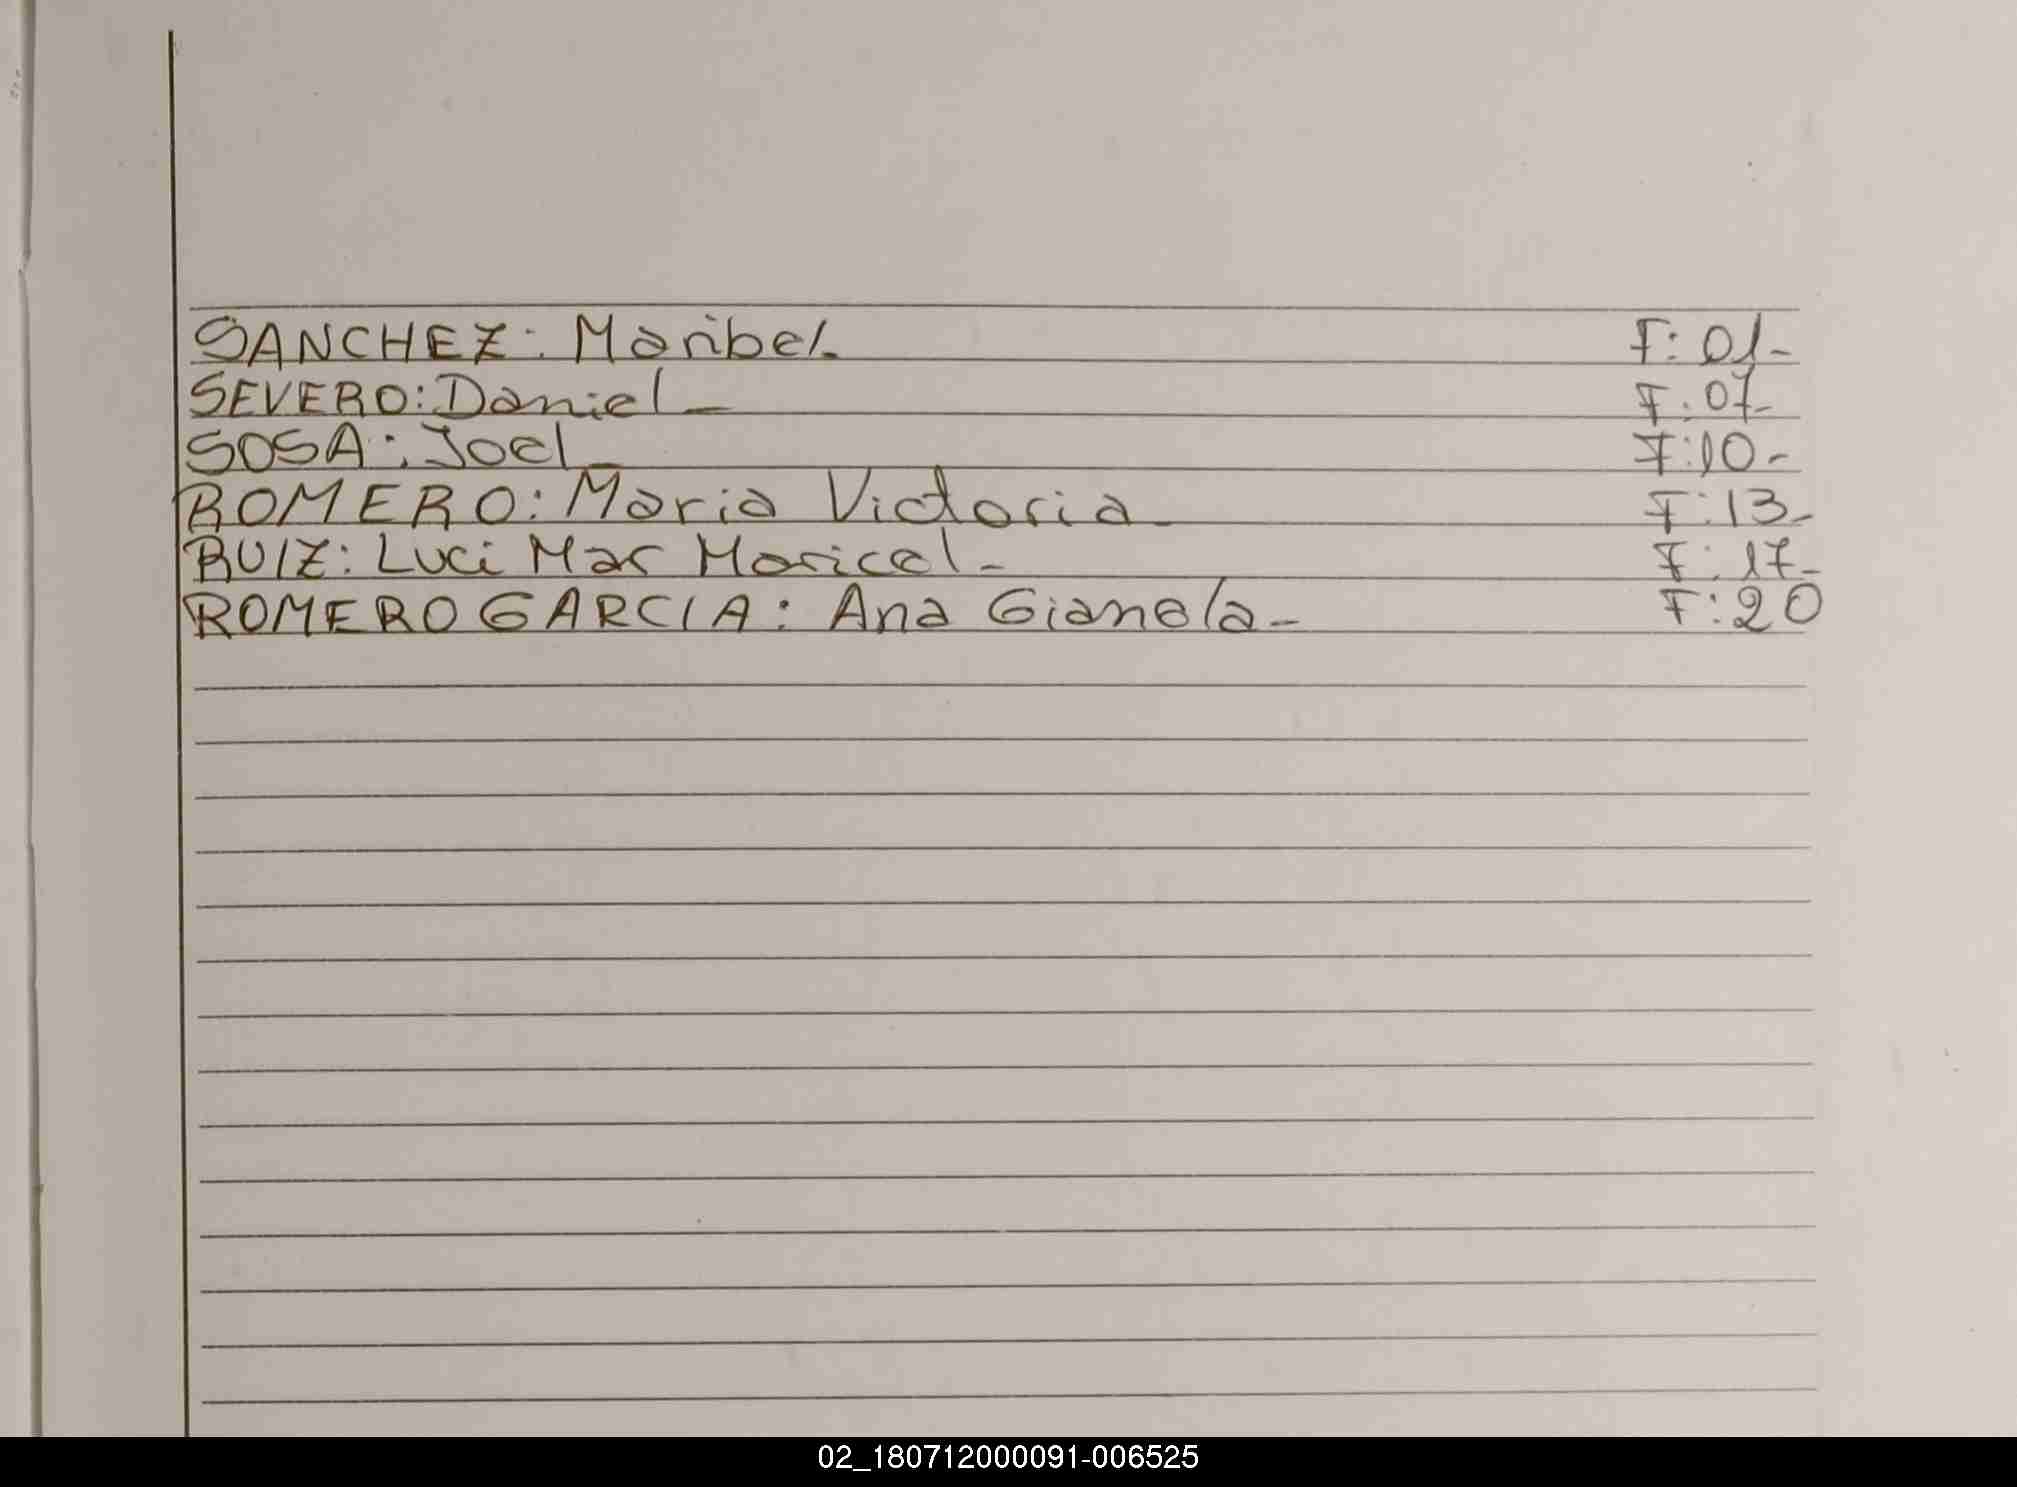 SANCHEZ: Maribel. F: 01-
SEVERO: Daniel- F: 07-
SOSA: Joel- F: 10-
ROMERO: Maria Victoria- F: 13-
RUIZ: Luci Mar Maricel- F: 17-
ROMERO GARCIA: Ana Gianela- F: 20
02_180712000091-006525